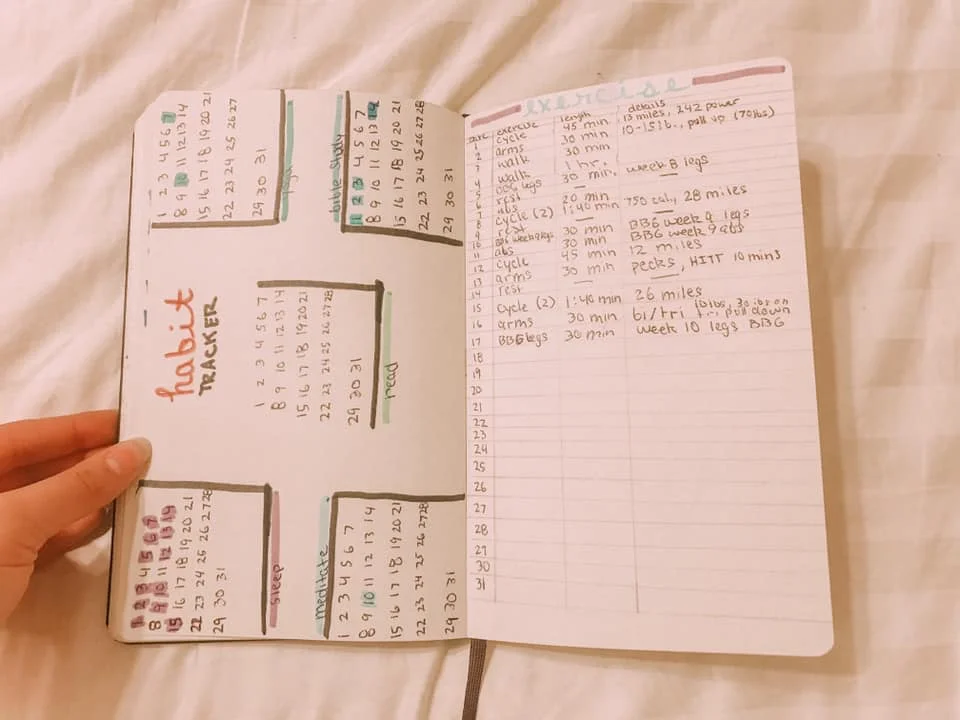 habit
TRACKER
yoga
1 2 3 4 5 6 7
8 9 10 11 12 13 14
15 16 17 18 19 20 21
22 23 24 25 26 27
29 30 31
bible study
1 2 3 4 5 6 7
8 9 10 11 12 13 14
15 16 17 18 19 20 21
22 23 24 25 26 27 28
29 30 31
read
1 2 3 4 5 6 7
8 9 10 11 12 13 14
15 16 17 18 19 20 21
22 23 24 25 26 27 28
29 30 31
sleep
1 2 3 4 5 6 7
8 9 10 11 12 13 14
15 16 17 18 19 20 21
22 23 24 25 26 27 28
29 30 31
meditate
1 2 3 4 5 6 7
8 9 10 11 12 13 14
15 16 17 18 19 20 21
22 23 24 25 26 27 28
29 30 31
exercise
date exercise length details
1 cycle 45 min 13 miles, 242 power
2 arms 30 min 10-15lb., pull up (70lbs)
3 walk 30 min
4 walk 1 hr.
5 BBG legs 30 min. week 8 legs
6 rest — —
7 abs 20 min —
8 cycle (2) 1:40 min 750 cal, 28 miles
9 rest —
10 BBG week 9 legs 30 min BBG week 9 legs
11 abs 30 min BBG week 9 abs
12 cycle 45 min 12 miles
13 arms 30 min pecks, HITT 10 mins
14 rest — —
15 cycle (2) 1:40 min 26 miles
16 arms 30 min bi/tri 10lbs, 30 lbs on pull down
17 BBG legs 30 min week 10 legs BBG
18
19
20
21
22
23
24
25
26
27
28
29
30
31